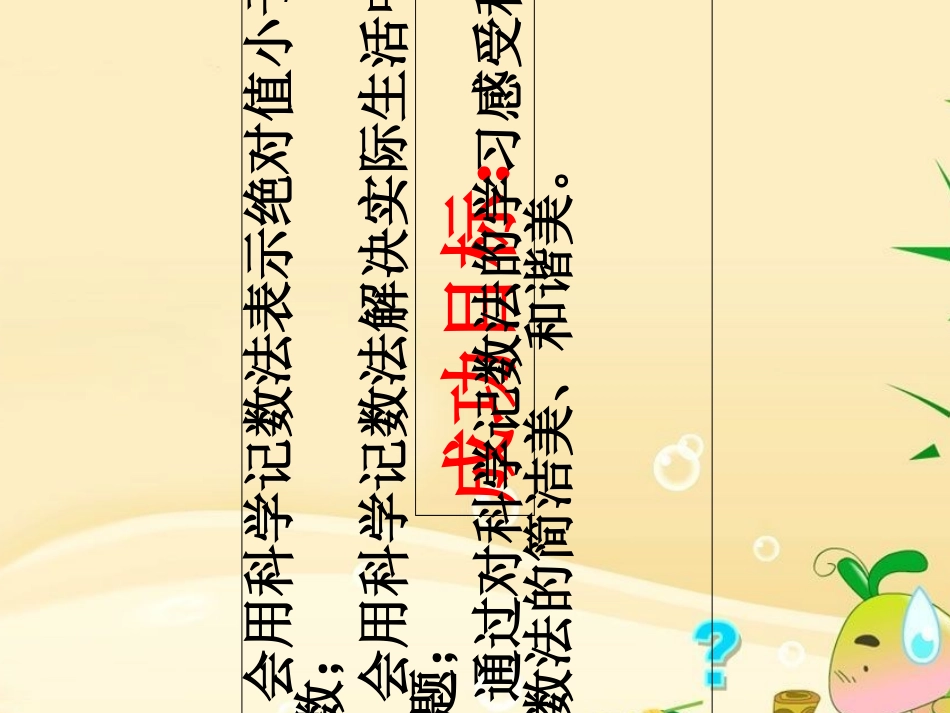 会用科学记数法表示绝对值小于
数；
会用科学记数法解决实际生活中
题；
成功目标：
通过对科学记数法的学习感受科
数法的简洁美、和谐美。
?